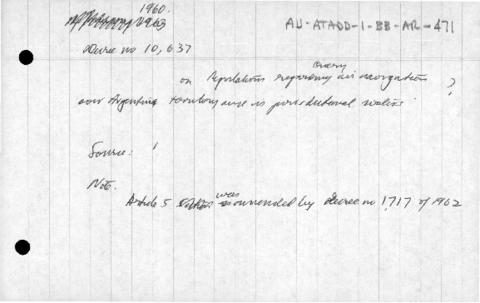 1960.
1963
AU-ATADD-1-BB-AR-471
Decree no 10,637
Query
on Regulations regarding air navigation ?
over Argentine territory and is jurisdictional waters.
Source:
Note.
was
Article 5 amended by Decree no 1,717 of 1962